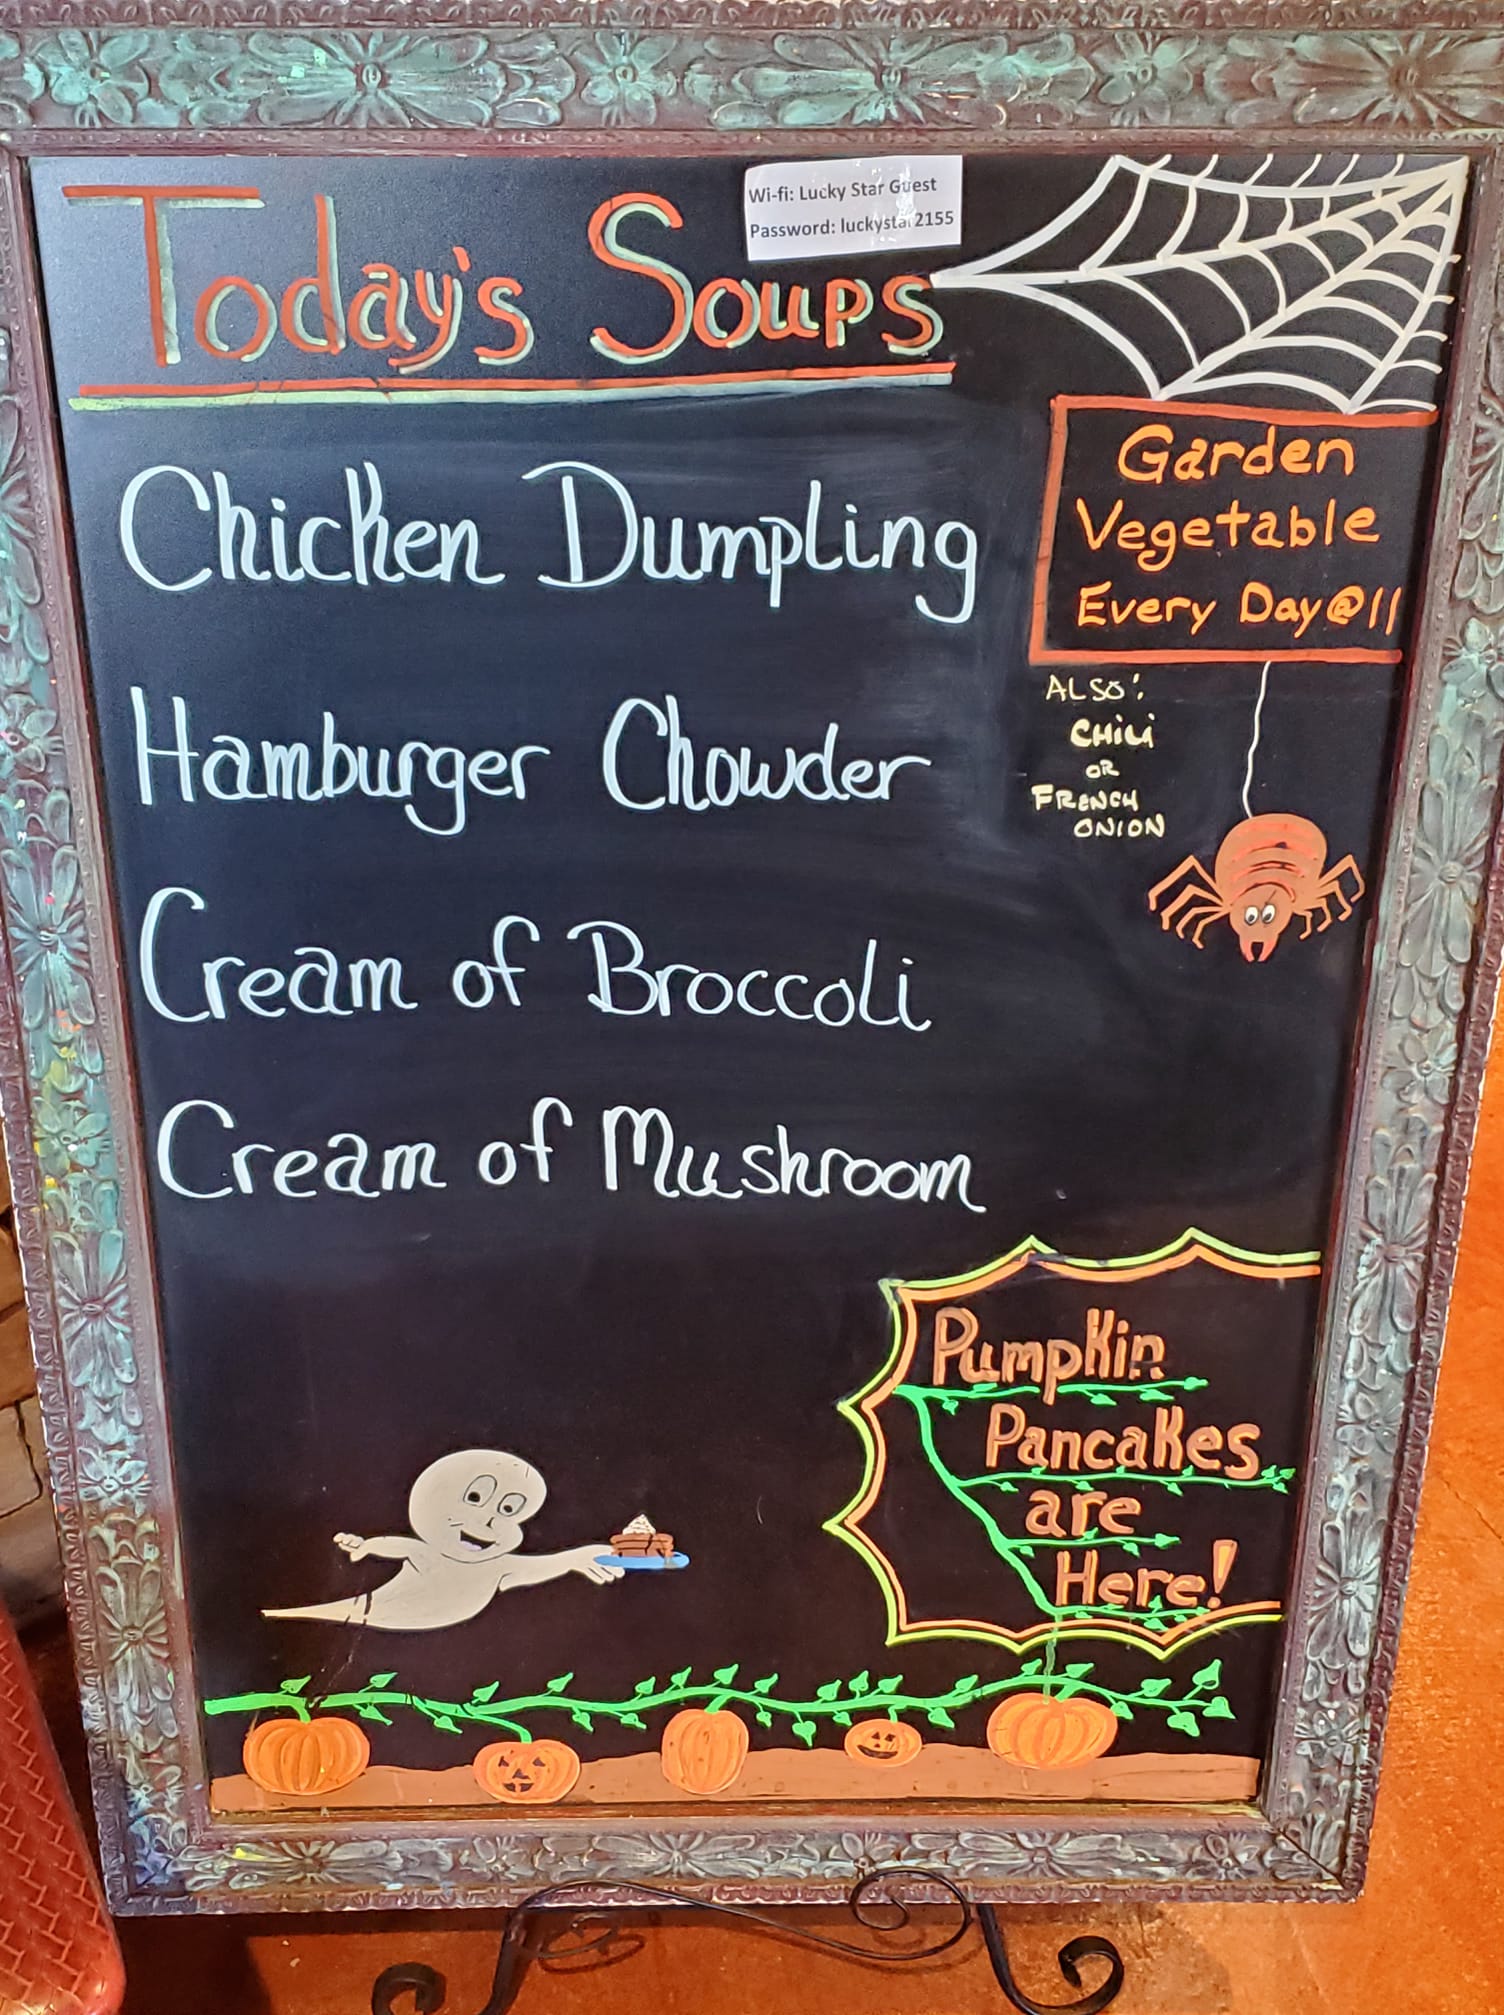 Today's Soups
Wi-fi: Lucky Star Guest
Password: luckystar2155
Chicken Dumpling
Hamburger Chowder
Cream of Broccoli
Cream of Mushroom
Garden
Vegetable
Every Day@11
ALSO:
CHILI
OR
FRENCH
ONION
Pumpkin
Pancakes
are
Here!